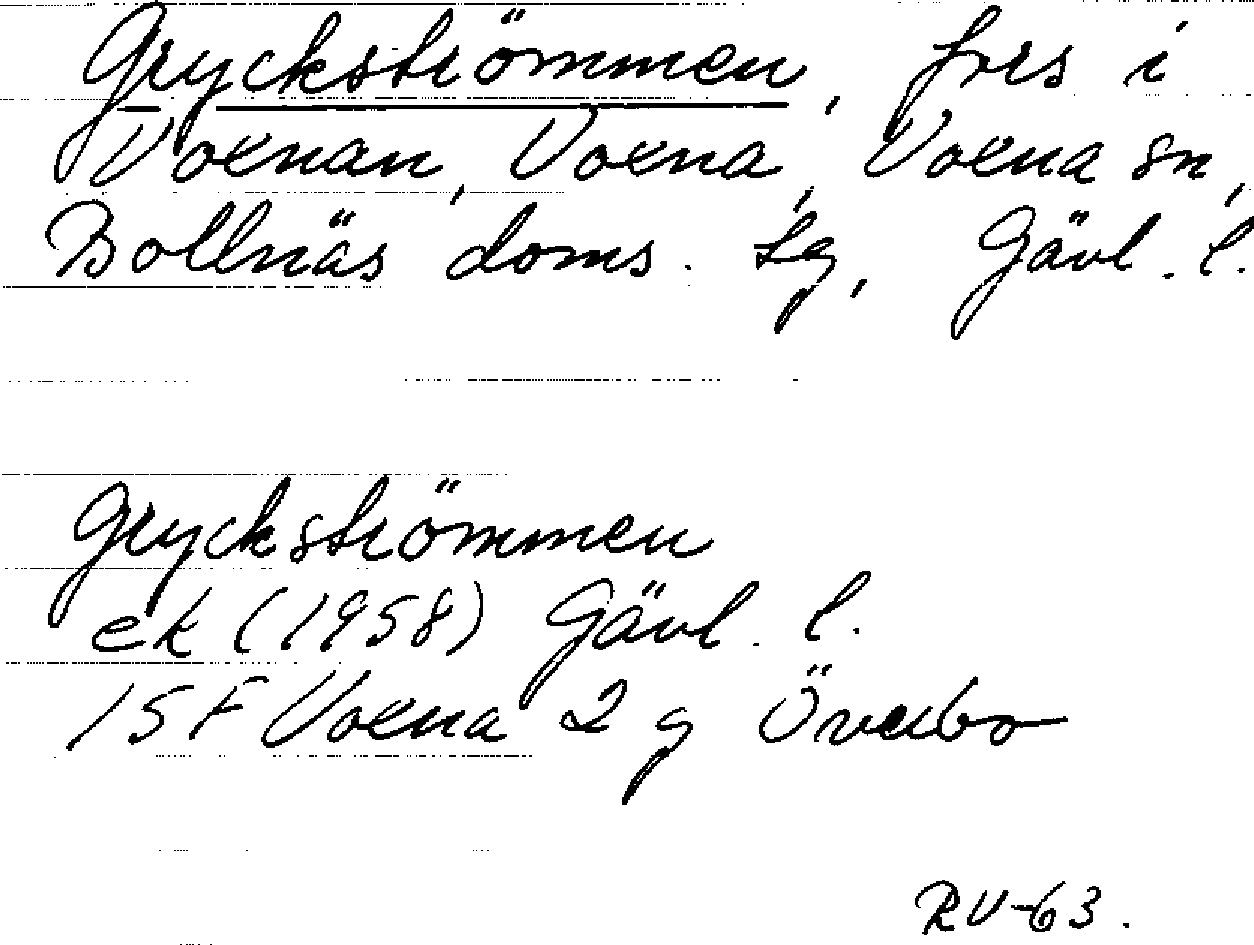 Gryckströmmen, fors i
Voxnan, Voxna, Voxna sn,
Bollnäs doms. tg, Gävl. l.
Gryckströmmen
ek (1958) Gävl. l.
15F Voxna 2 g Överbo
RV-63.